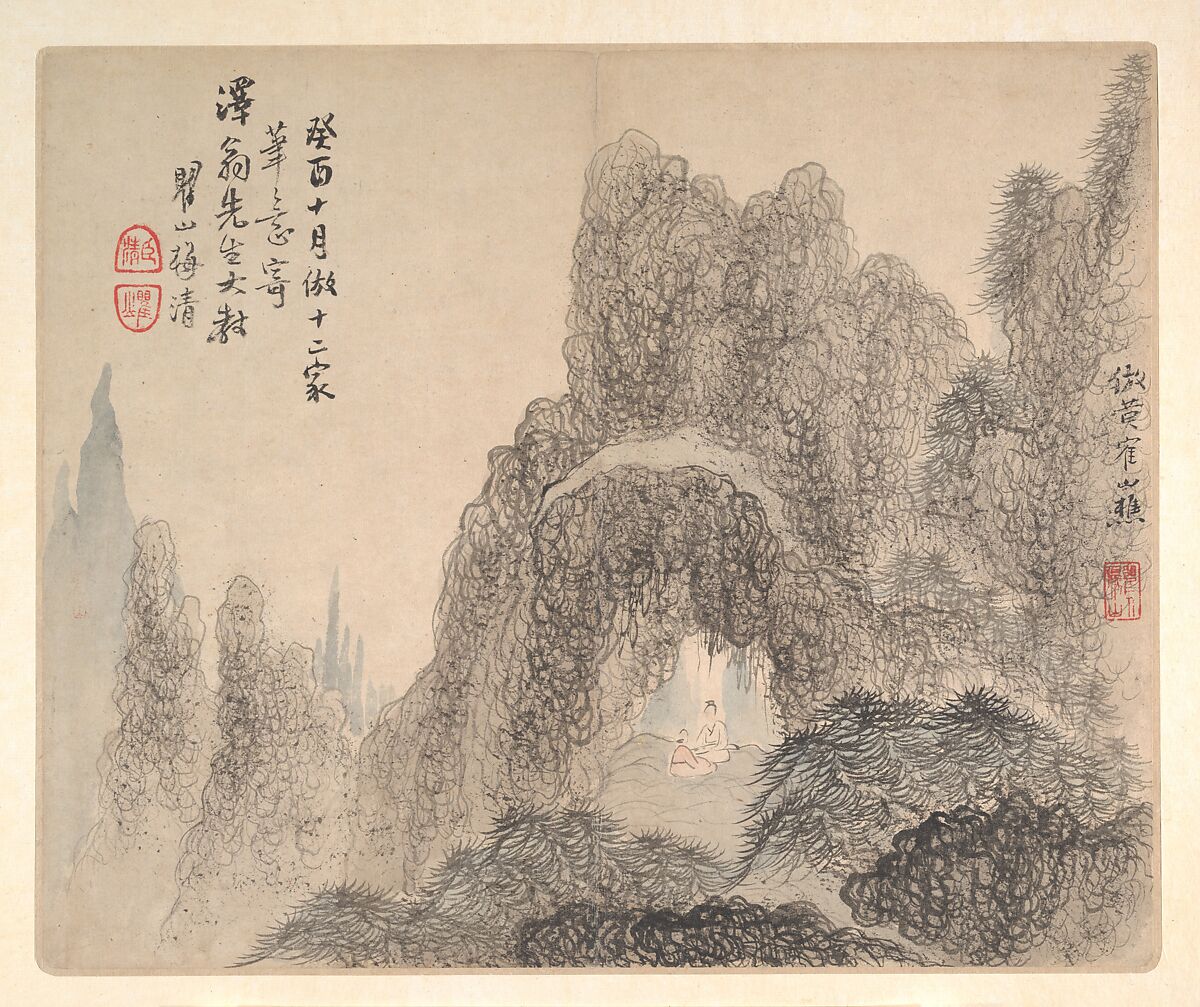 倣黃寉山樵
癸酉十月倣十二家
筆意寄
澤翁先生大教
瞿山梅清
臣清
瞿山